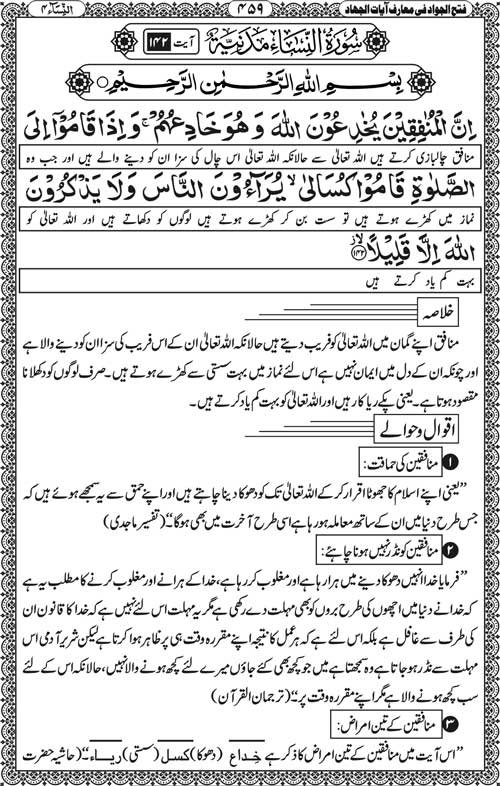 النسآء ۴ ۴۵۹ فتح الجواد فی معارف آیات الجہاد
سُوْرَةُ النِّسَآءِ مَدَنِیَّةٌ آیت ۱۴۲
بِسْمِ اللهِ الرَّحْمٰنِ الرَّحِیْمِ
اِنَّ الْمُنٰفِقِیْنَ یُخٰدِعُوْنَ اللهَ وَهُوَ خَادِعُهُمْ ۚ وَاِذَا قَامُوْٓا اِلَی
منافق چالبازی کرتے ہیں اللہ تعالیٰ سے حالانکہ اللہ تعالیٰ اس چال کی سزا ان کو دینے والے ہیں اور جب وہ
الصَّلٰوةِ قَامُوْا كُسَالٰی ۙ یُرَآءُوْنَ النَّاسَ وَلَا یَذْكُرُوْنَ
نماز میں کھڑے ہوتے ہیں تو سست بن کر کھڑے ہوتے ہیں لوگوں کو دکھاتے ہیں اور اللہ تعالیٰ کو
اللهَ اِلَّا قَلِیْلًا ۙ۱۴۲
بہت کم یاد کرتے ہیں
خلاصہ
منافق اپنے گمان میں اللہ تعالیٰ کو فریب دیتے ہیں حالانکہ اللہ تعالیٰ ان کے اس فریب کی سزا ان کو دینے والا ہے
اور چونکہ ان کے دل میں ایمان نہیں ہے اس لئے نماز میں بہت سستی سے کھڑے ہوتے ہیں۔ صرف لوگوں کو دکھلانا
مقصود ہوتا ہے۔ یعنی پکے ریا کار ہیں اور اللہ تعالیٰ کو بہت کم یاد کرتے ہیں۔
اقوال و حوالے
۱ منافقین کی حماقت:
”یعنی اپنے اسلام کا جھوٹا اقرار کر کے اللہ تعالیٰ تک کو دھوکا دینا چاہتے ہیں اور اپنے حمق سے یہ سمجھے ہوئے ہیں کہ
جس طرح دنیا میں ان کے ساتھ معاملہ ہو رہا ہے اسی طرح آخرت میں بھی ہوگا“۔ (تفسیر ماجدی)
۲ منافقین کو نڈر نہیں ہونا چاہئے:
”فرمایا خدا انہیں دھوکا دینے میں ہرا رہا ہے اور مغلوب کر رہا ہے، خدا کے ہرانے اور مغلوب کرنے کا مطلب یہ ہے
کہ خدا نے دنیا میں اچھوں کی طرح بروں کو بھی مہلت دے رکھی ہے مگر یہ مہلت اس لئے نہیں ہے کہ خدا کا قانون ان
کی طرف سے غافل ہے بلکہ اس لئے ہے کہ ہر عمل کا نتیجہ اپنے مقررہ وقت ہی پر ظاہر ہوا کرتا ہے لیکن شریر آدمی اس
مہلت سے نڈر ہو جاتا ہے وہ سمجھتا ہے میں جو کچھ بھی کئے جاؤں میرے لئے کچھ ہونے والا نہیں، حالانکہ اس کے لئے
سب کچھ ہونے والا ہے مگر اپنے مقررہ وقت پر“۔ (ترجمان القرآن)
۳ منافقین کے تین امراض:
”اس آیت میں منافقین کے تین امراض کا ذکر ہے خداع (دھوکا) کسل (سستی) ریاء۔“ (حاشیہ حضرت